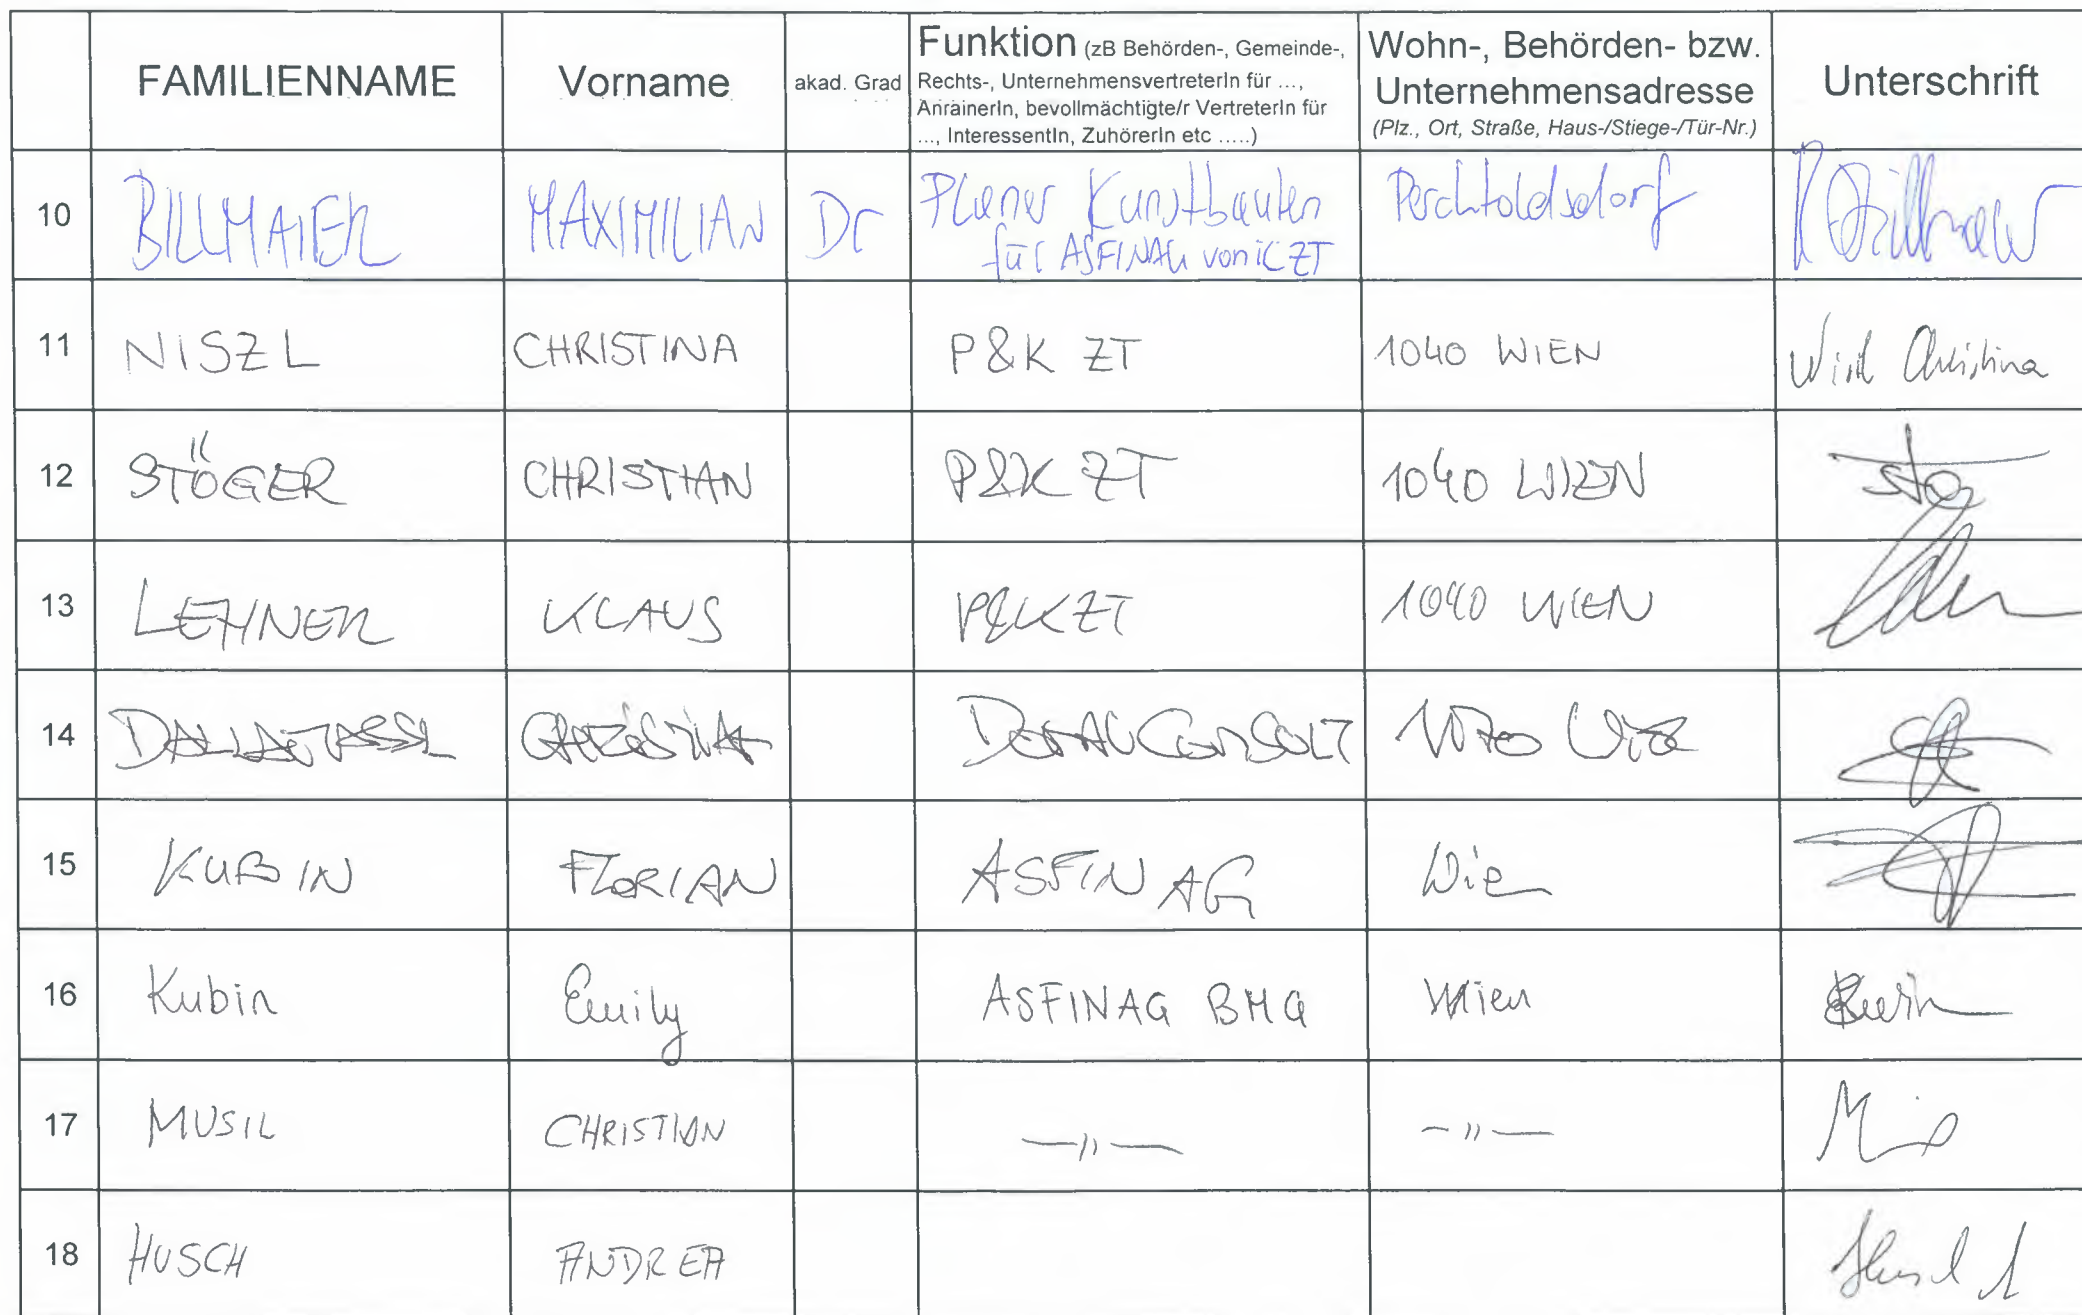 FAMILIENNAME Vorname akad. Grad Funktion (zB Behörden-, Gemeinde-, Rechts-, UnternehmensvertreterIn für ..., AnrainerIn, bevollmächtigte/r VertreterIn für ..., InteressentIn, ZuhörerIn etc .....) Wohn-, Behörden- bzw. Unternehmensadresse (Plz., Ort, Straße, Haus-/Stiege-/Tür-Nr.) Unterschrift
10 BILLMAIER MAXIMILIAN Dr Planer Kunstbauten für ASFINAG von iC ZT Perchtoldsdorf
11 NISZL CHRISTINA P&K ZT 1040 WIEN Niszl Christina
12 STÖGER CHRISTIAN P&K ZT 1040 WIEN
13 LEHNER KLAUS P&K ZT 1040 WIEN
14 DONAUCONSULT
15 KUBIN FLORIAN ASFINAG Wien
16 Kubin Emily ASFINAG BMG Wien
17 MUSIL CHRISTIAN —"— —"—
18 HUSCH ANDREA